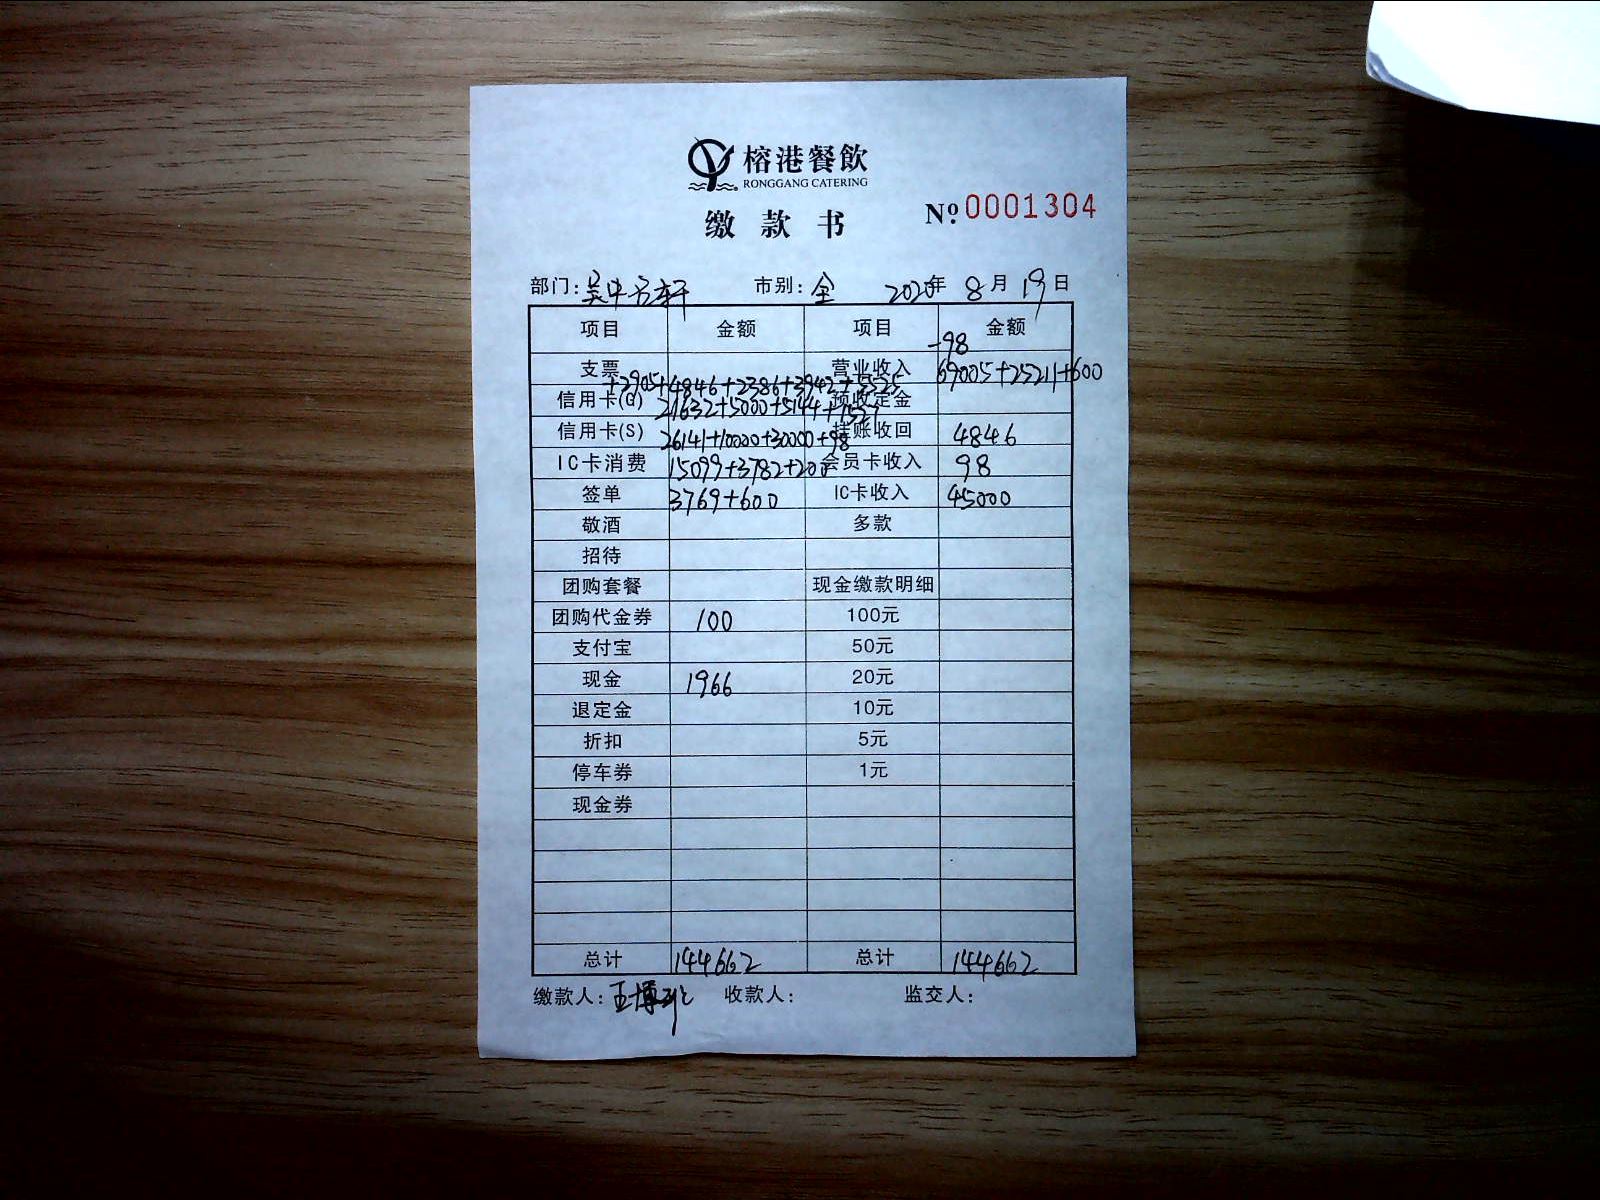 榕港餐飲
RONGGANG CATERING
缴款书
№ 0001304
部门: 吴中名轩 市别: 全 2020年 8月 19日
项目 金额 项目 金额
-98
支票 营业收入 69005+25211+600
+2905+4846+2386+3942+5525
信用卡(G) 21632+5000+5144+1527 预收定金
信用卡(S) 26141+10000+30000+98 挂账收回 4846
IC卡消费 15099+3782+200 会员卡收入 98
签单 3769+600 IC卡收入 45000
敬酒 多款
招待
团购套餐 现金缴款明细
团购代金券 100 100元
支付宝 50元
现金 1966 20元
退定金 10元
折扣 5元
停车券 1元
现金券
总计 144662 总计 144662
缴款人: 王博 收款人: 监交人: